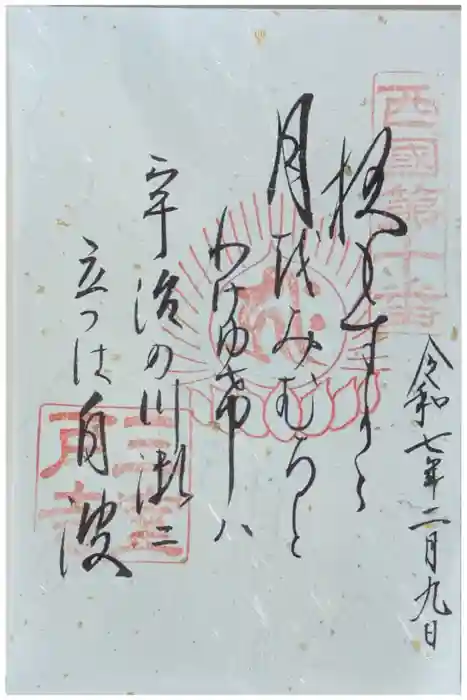 西國第十番
令和七年二月九日
夜もすから
月越みむろと
わけゆ希ハ
宇治の川瀬ニ
立つは白波
三室
戸寺